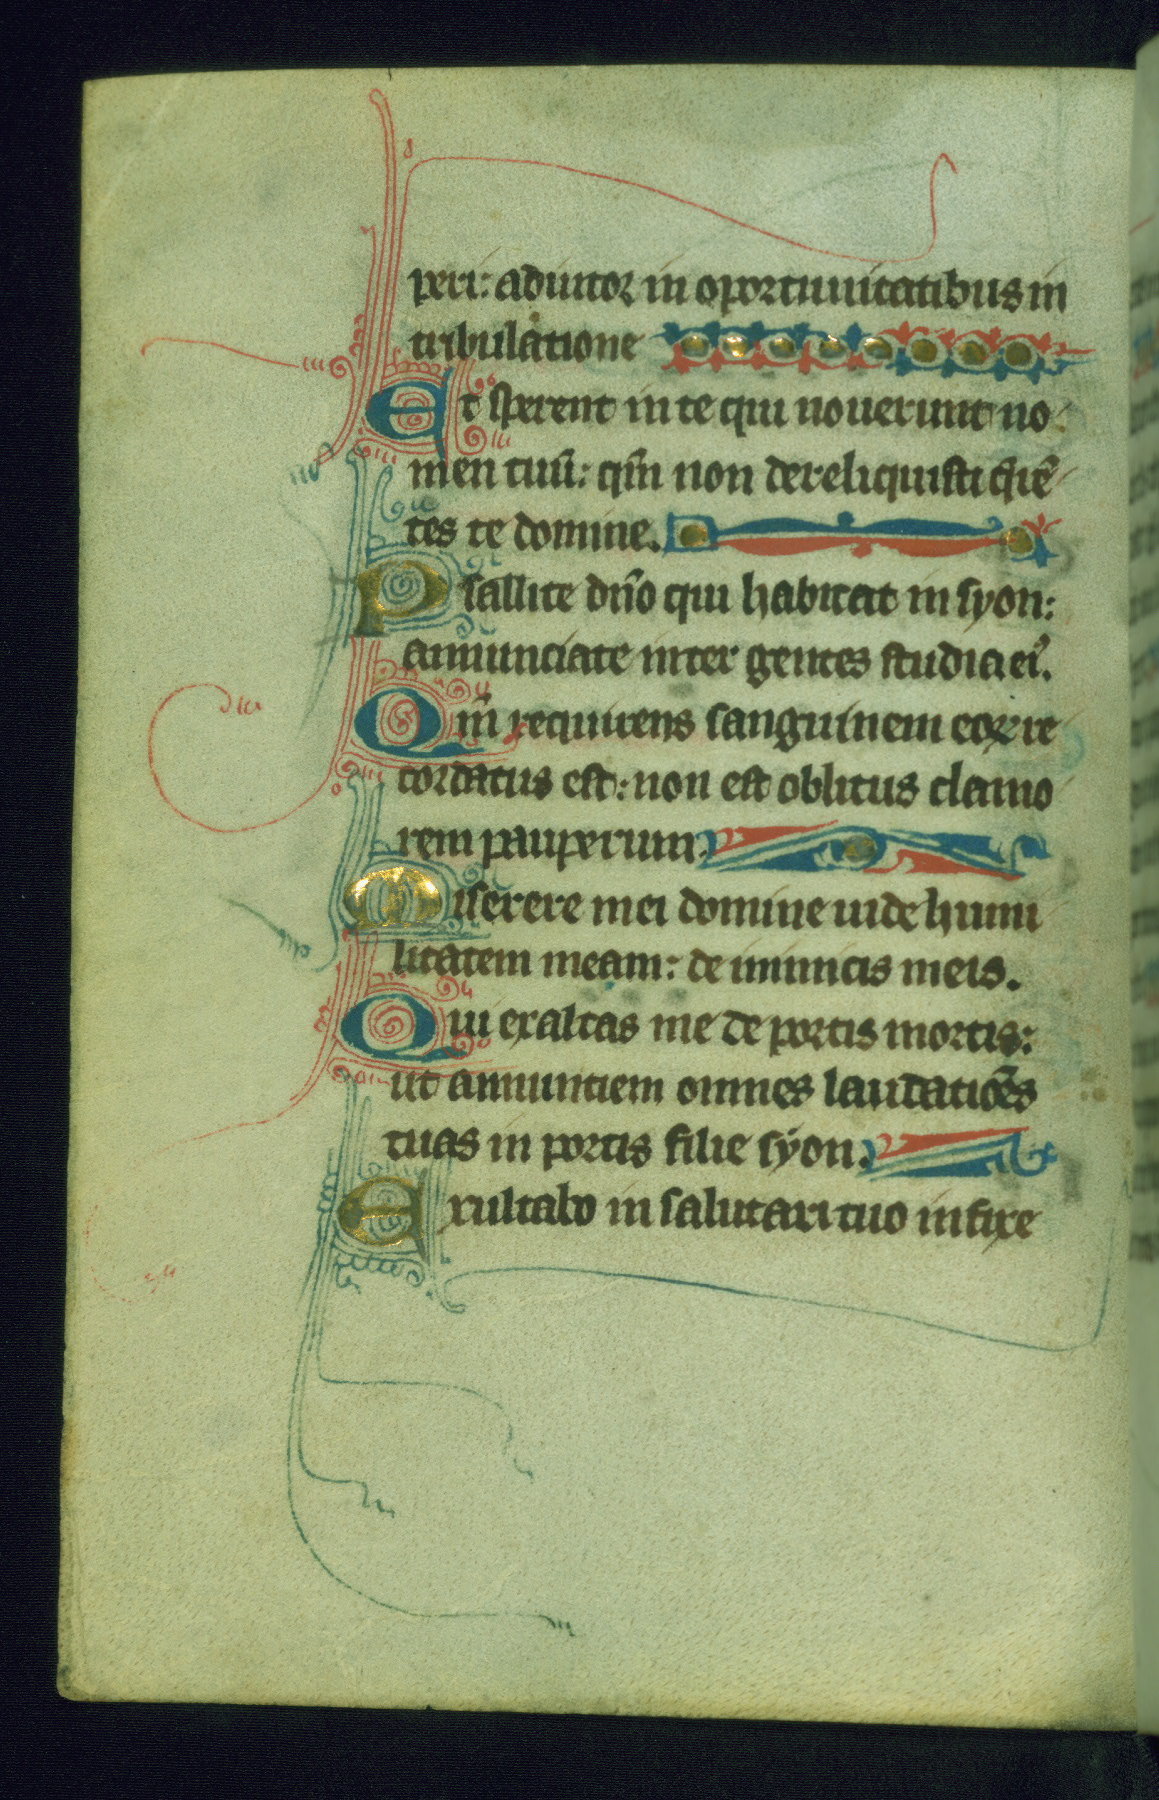 peri: adiutor in oportunitatibus in
tribulatione
Et sperent in te qui nouerunt no
men tuū: qm̄ non dereliquisti q̄rē
tes te domine.
Psallite dn̄o qui habitat in syon:
annunciate inter gentes studia ei᷒.
Qm̄ requirens sanguinem eorr re
cordatus est: non est oblitus clamo
rem pauperum.
Miserere mei domine uide humi
litatem meam: de inimicis meis.
Qui exaltas me de portis mortis:
ut annuntiem omnes laudatiōēs
tuas in portis filie syon.
Exultabo in salutari tuo infixe